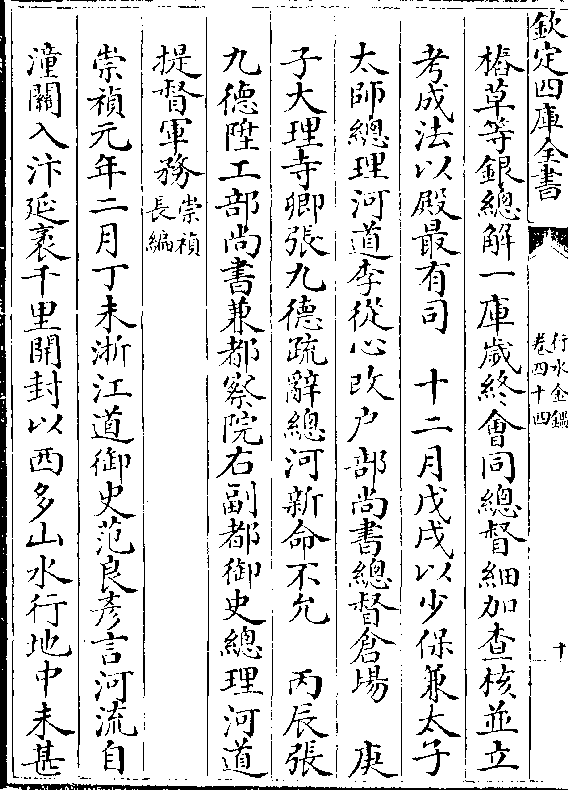 欽定四庫全書
行水金鑑
卷四十四
十
樁草等銀總解一庫歲終會同總督細加查核並立
考成法以殿最有司　十二月戊戌以少保兼太子
太師總理河道李從心改户部尚書總督倉場　庚
子大理寺卿張九德疏辭總河新命不允　丙辰張
九德陞工部尚書兼都察院右副都御史總理河道
提督軍務崇禎長編
崇禎元年二月丁未浙江道御史范良彥言河流自
潼關入汴延袤千里開封以西多山水行地中未甚